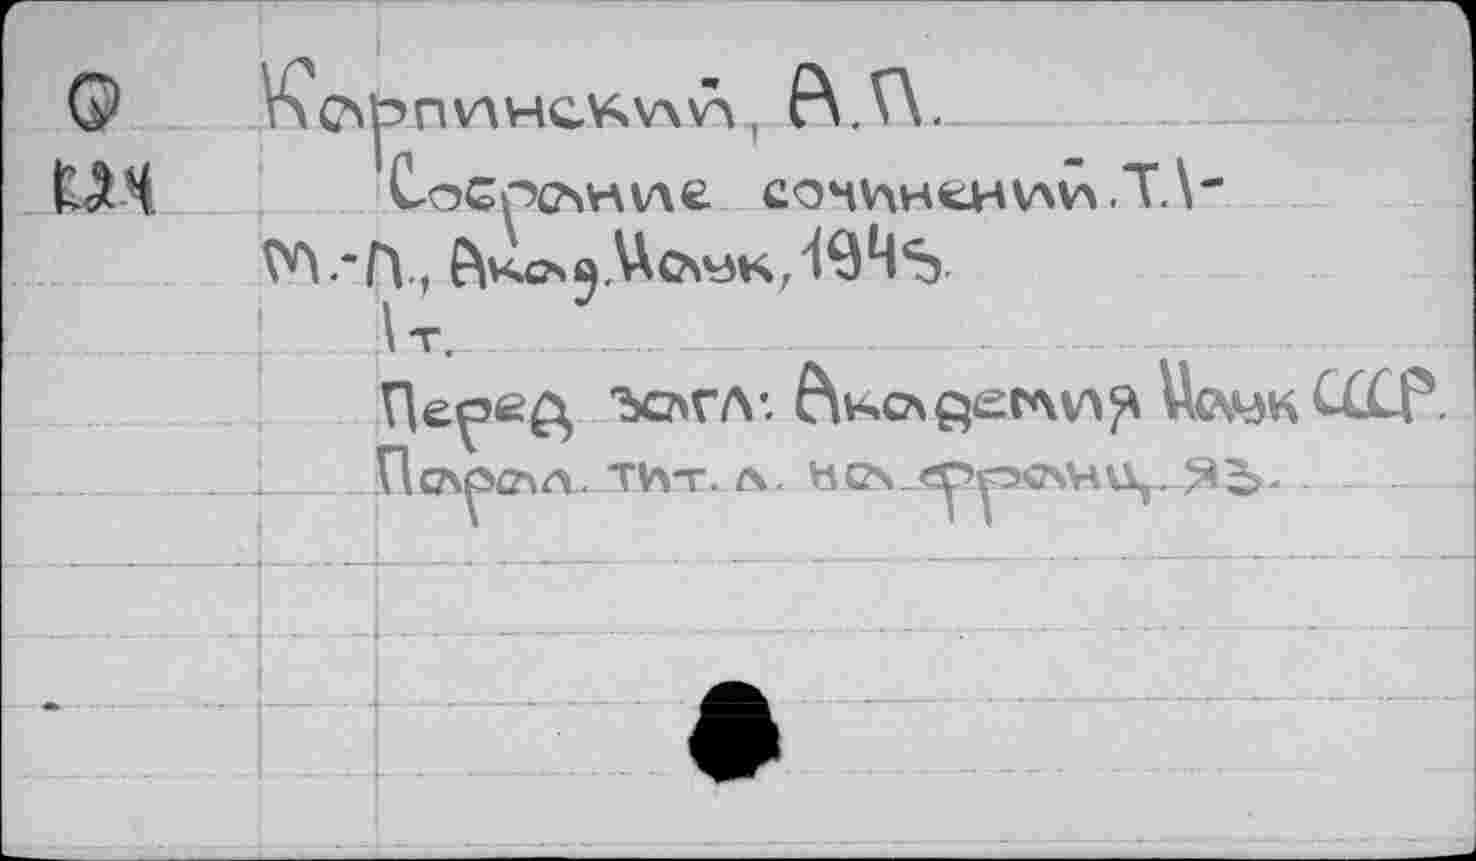 Q
Карпинский, А.П.
Собрание сочинений. Т.1-
М.-Л., Акад.Наук, 1945
1 т.
Перед загл: Академия Наук СССР.
Парал. тит. л. на франц. яз.